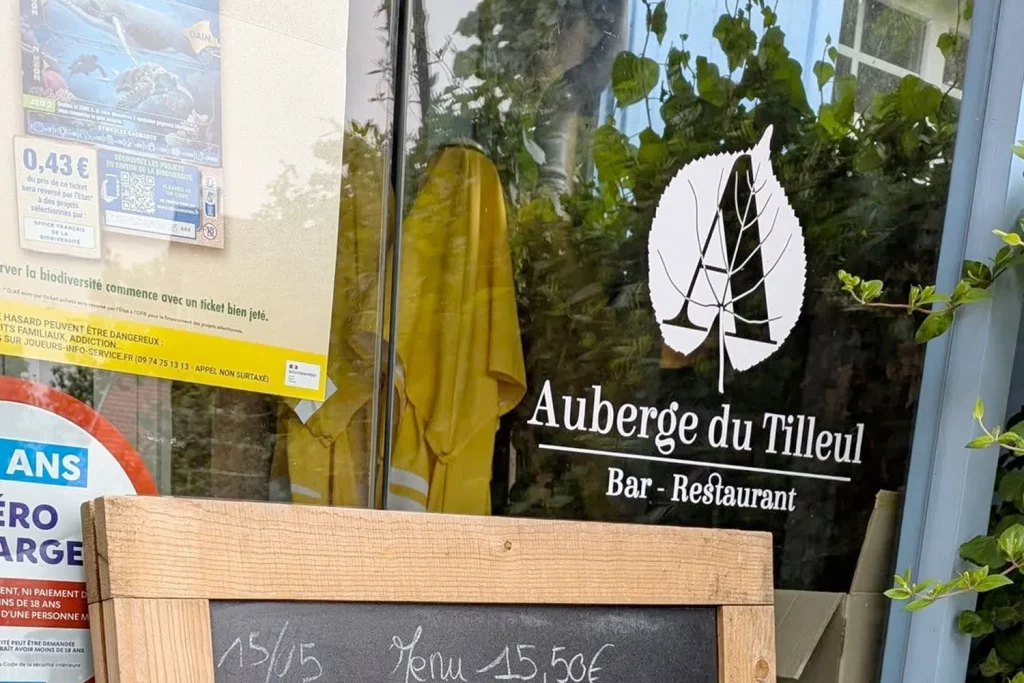 GAIN
JEU 2
SYMBOLES GAGNANTS
0,43 €
du prix de ce ticket
sera reversé par l'Etat*
à des projets
sélectionnés par :
OFFICE FRANÇAIS
DE LA
BIODIVERSITÉ
DÉCOUVREZ LES PROJETS
EN FAVEUR DE LA BIODIVERSITÉ
rver la biodiversité commence avec un ticket bien jeté.
E HASARD PEUVENT ÊTRE DANGEREUX :
ITS FAMILIAUX, ADDICTION...
S SUR JOUEURS-INFO-SERVICE.FR (09 74 75 13 13 - APPEL NON SURTAXÉ)
A
Auberge du Tilleul
Bar - Restaurant
ANS
ÉRO
ARGE
ENT, NI PAIEMENT D
INS DE 18 ANS
D'UNE PERSONNE M
TITÉ PEUT ÊTRE DEMANDÉE
RAÎT AVOIR MOINS DE 18 ANS
u Code de la sécurité intérieure
15/05 Menu 15,50€